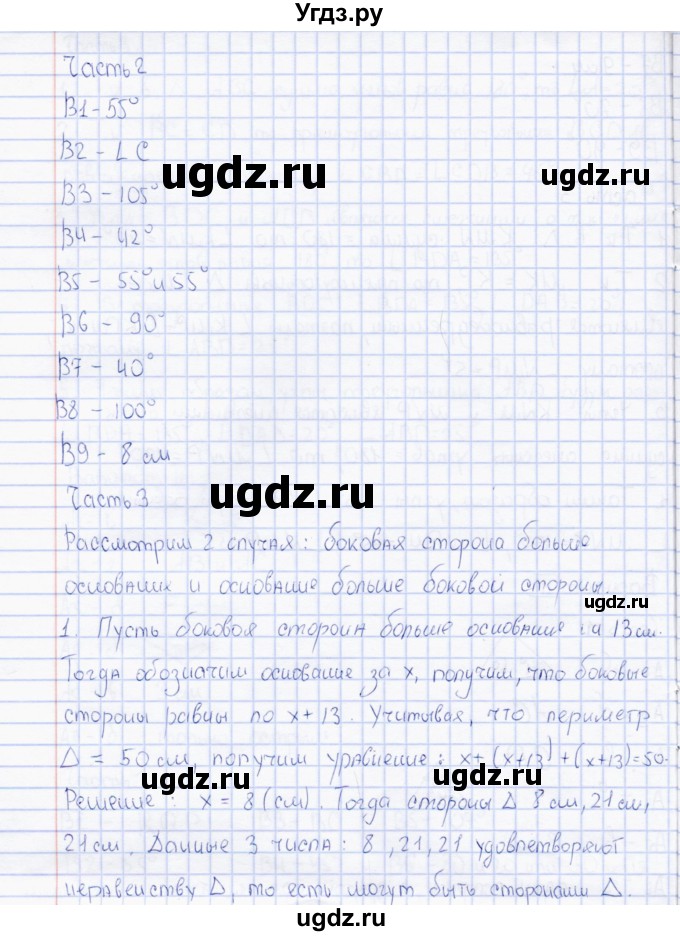 Угдз.ру
Часть 2
В1 - 55°
В2 - ∠ С
ugdz.ru
ugdz.ru
В3 - 105°
В4 - 42°
В5 - 55° и 55°
В6 - 90°
В7 - 40°
В8 - 100°
В9 - 8 см
Часть 3
ugdz.ru
Рассмотрим 2 случая: боковая сторона больше
основания и основание больше боковой стороны.
ugdz.ru
1. Пусть боковая сторона больше основания на 13 см.
Тогда обозначим основание за x, получим, что боковые
стороны равны по x + 13. Учитывая, что периметр
Δ = 50 см, получим уравнение: x + (x+13) + (x+13) = 50.
ugdz.ru
ugdz.ru
Решение: x = 8 (см). Тогда стороны Δ 8 см, 21 см,
21 см. Данные 3 числа: 8, 21, 21 удовлетворяют
неравенству Δ, то есть могут быть сторонами Δ.
ugdz.ru